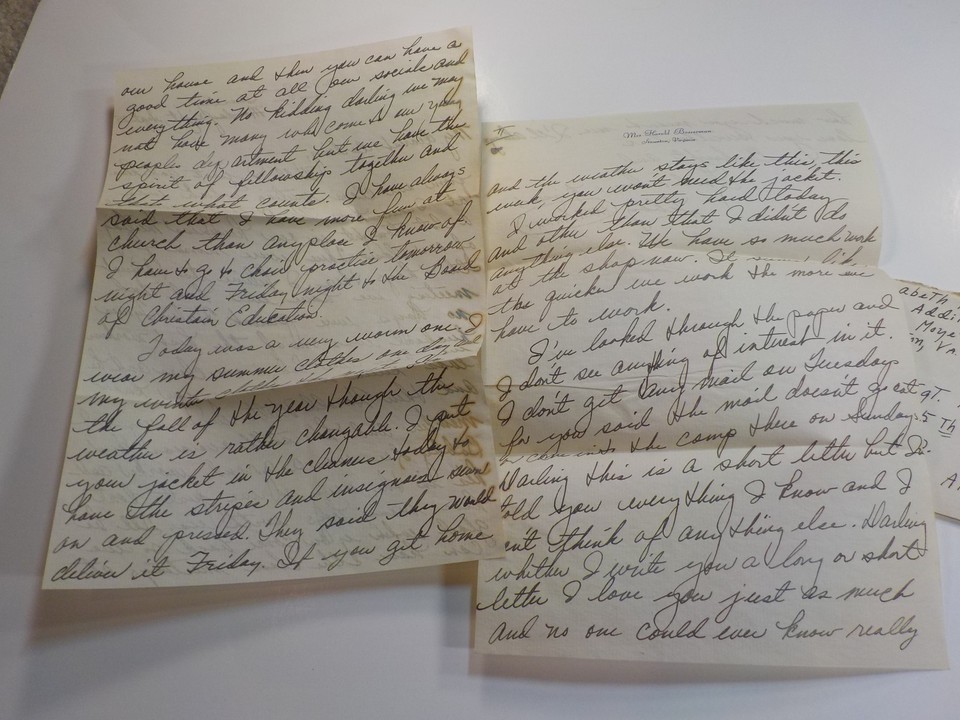 our house and then you can have a
good time at all our socials and
everything. No kidding darling we may
not have many who come to our young
people's department but we have the
spirit of fellowship together and
that what counts. I have always
said that I have more fun at
church than anyplace I know of.
I have to go to choir practise tomorrow
night and Friday night to the Board
of Christain Education.
Today was a very warm one. I
wear my summer clothes one day
my winter
the fall of the year though the
weather is rather changable. I put
your jacket in the cleaners today to
have the stripes and insignous sewn
on and pressed. They said they would
deliver it Friday. If you get home
Mrs Harold
Virginia
and the weather stays like this, this
week, you wont need the jacket.
I worked pretty hard today
and other than that I didn't do
anything else. We have so much work
at the shop now. It seems like
the quicker we work the more we
have to work.
I've looked through the paper and
I don't see anything of interest in it.
I don't get any mail on Tuesdays
for you said the mail doesn't go out
the camp there on Sunday.
Darling this is a short letter but I've
told you everything I know and I
can't think of anything else. Darling
whether I write you a long or short
letter I love you just as much
and no one could ever know really
abeth
Addi